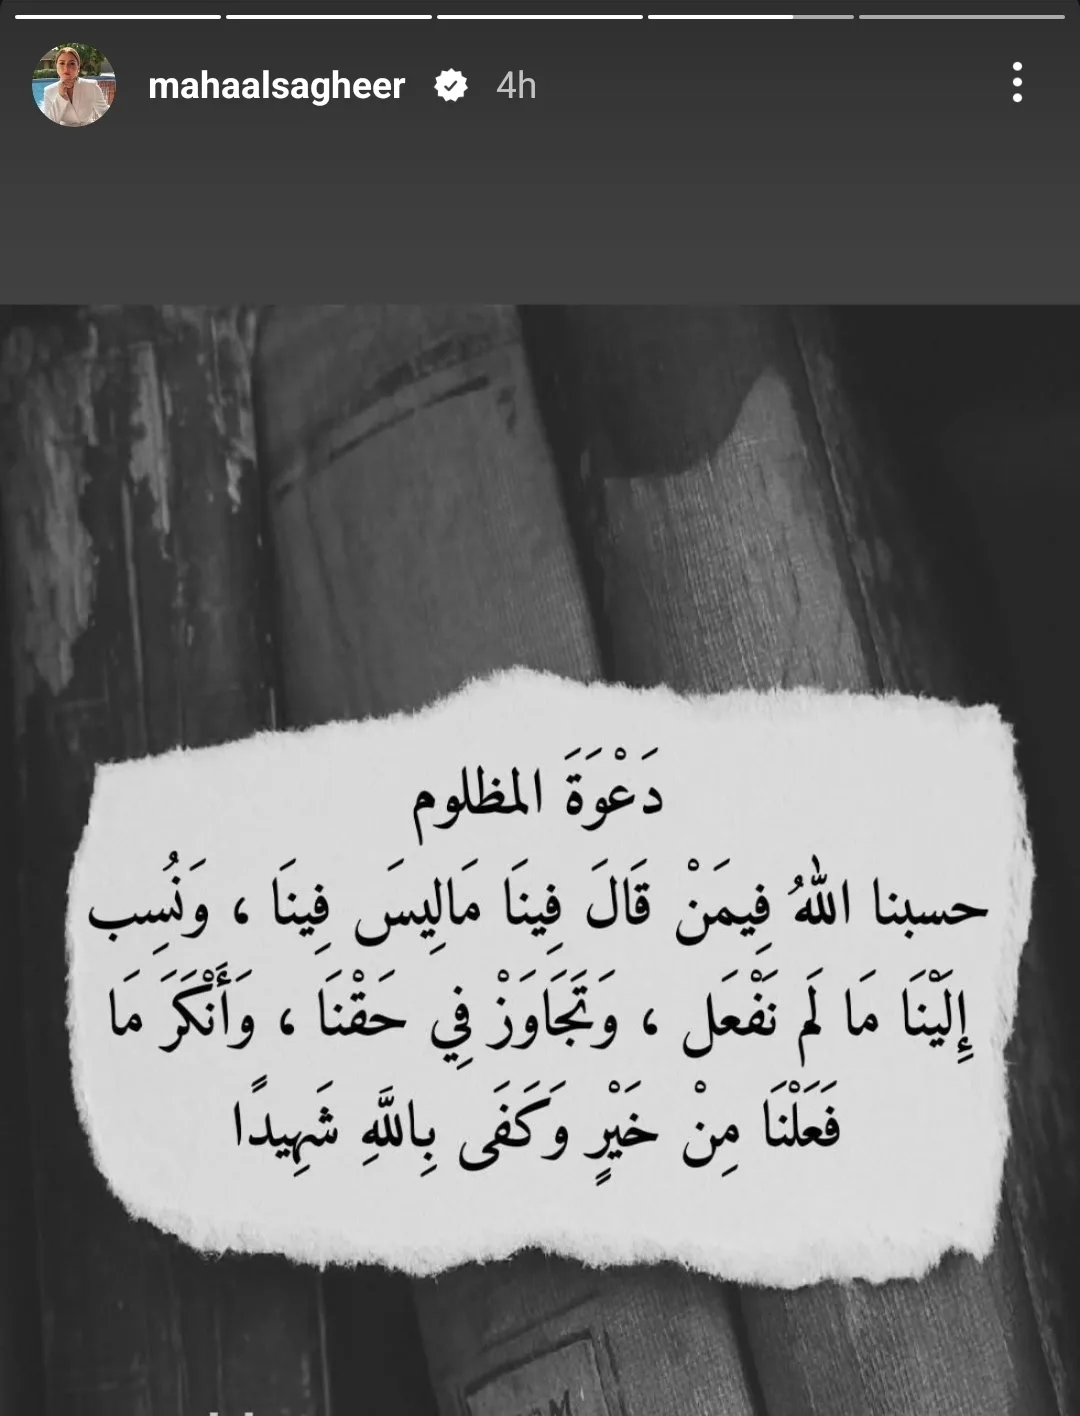 mahaalsagheer 4h
دَعْوَةَ المظلوم
حسبنا اللهُ فِيمَنْ قَالَ فِينَا مَالِيسَ فِينَا ، وَنُسِب
إِلَيْنَا مَا لَم نَفْعَل ، وَتَجَاوَزْ فِي حَقْنَا ، وَأَنْكَرَ مَا
فَعَلْنَا مِنْ خَيْرٍ وَكَفَى بِاللَّهِ شَهِيدًا